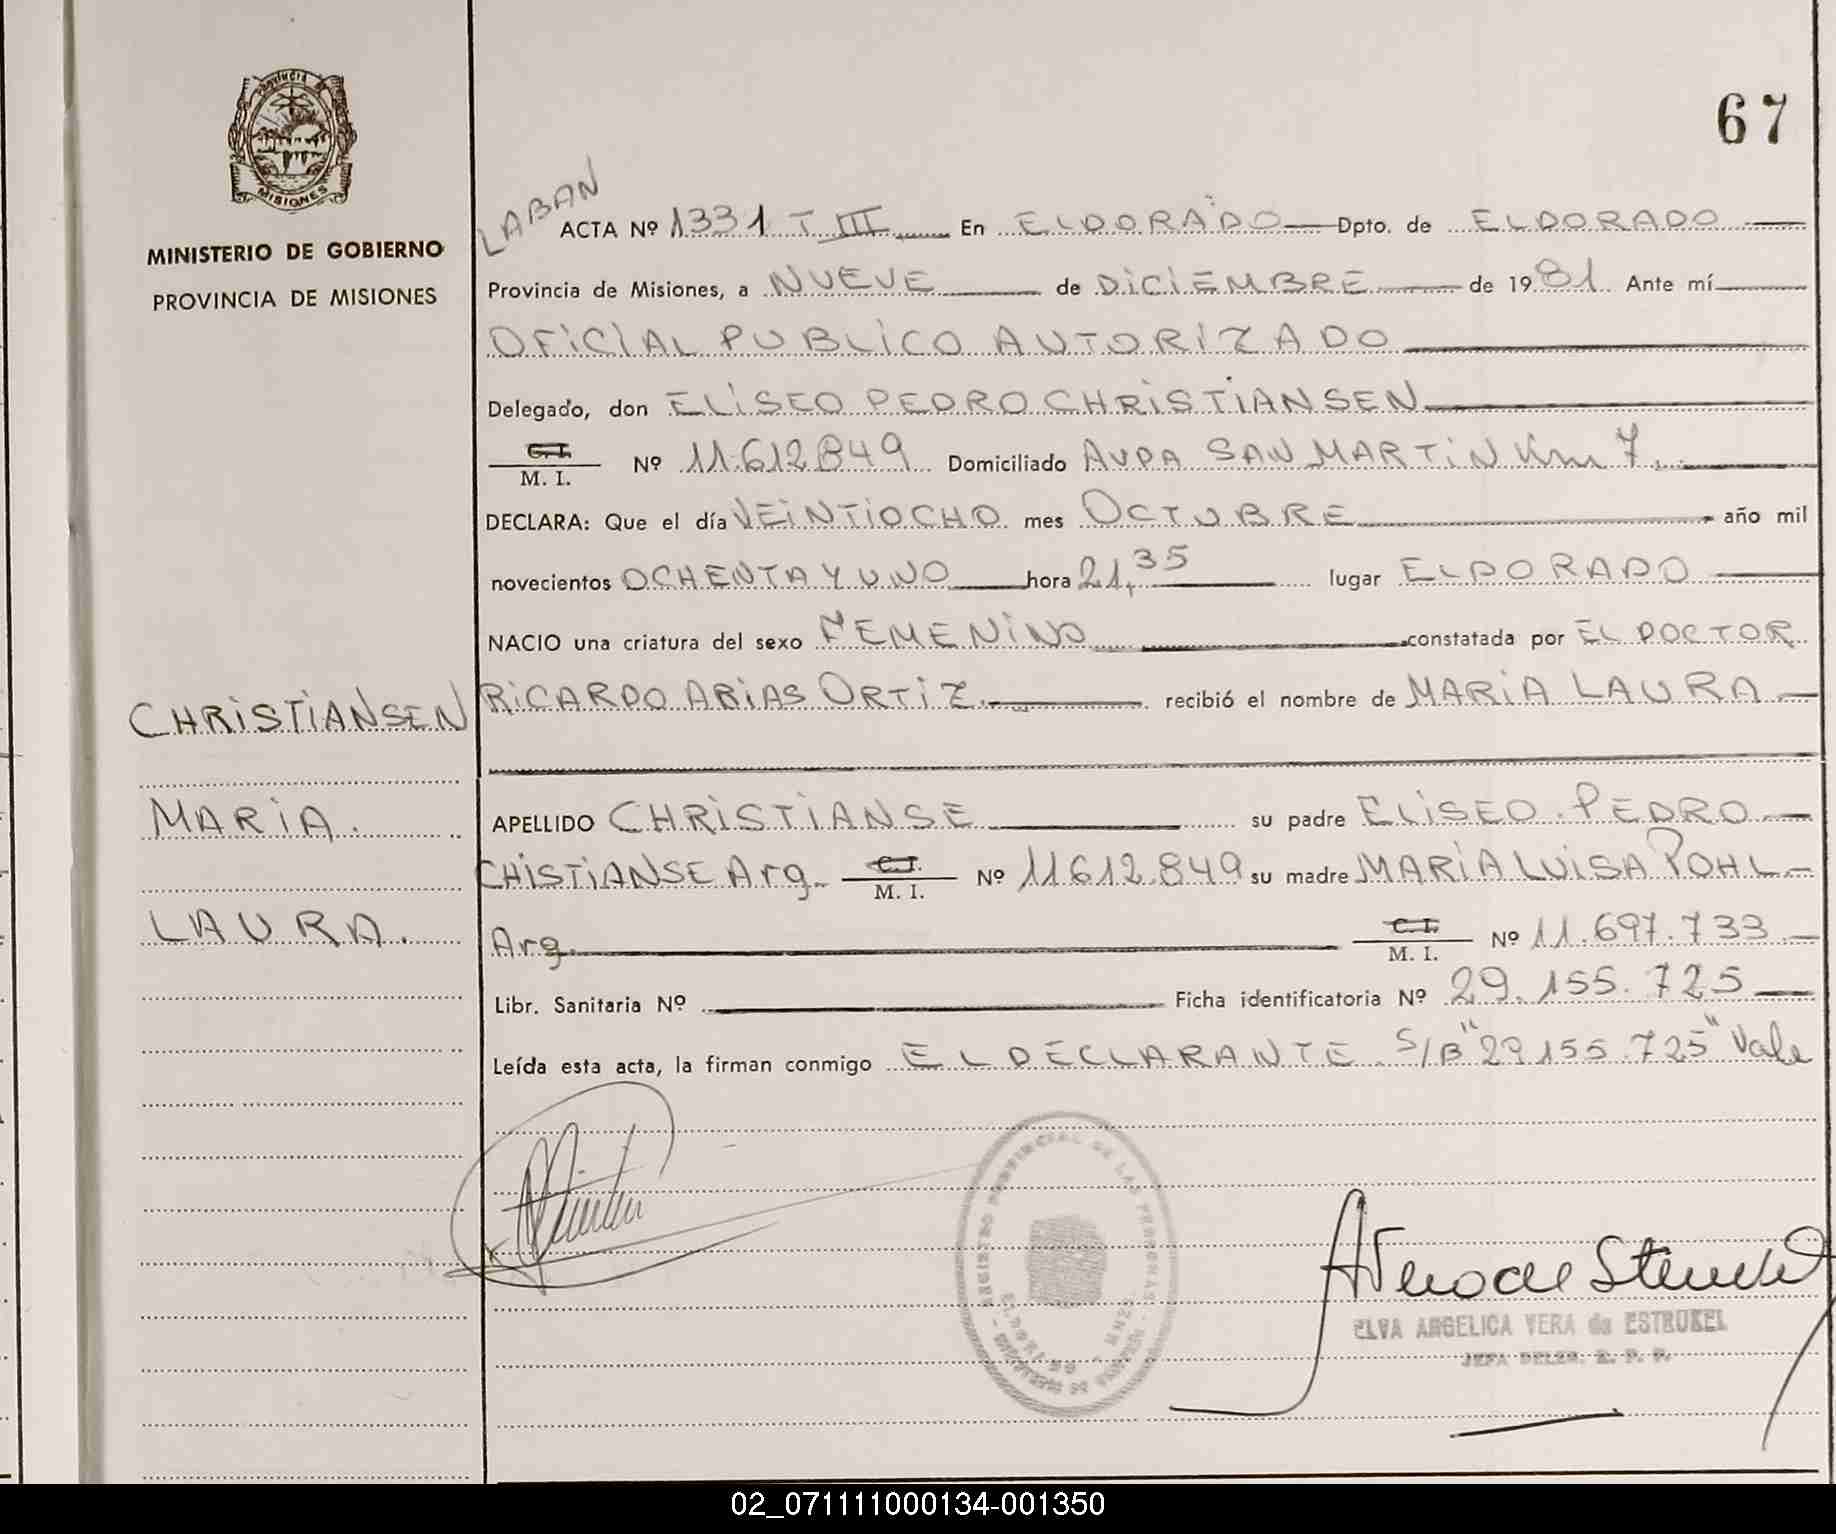 67
PROVINCIA DE
MISIONES
MINISTERIO DE GOBIERNO
PROVINCIA DE MISIONES
LABAN
ACTA Nº 1331 T III En ELDORADO Dpto. de ELDORADO
Provincia de Misiones, a NUEVE de DICIEMBRE de 1981 Ante mí
OFICIAL PUBLICO AUTORIZADO
Delegado, don ELISEO PEDRO CHRISTIANSEN
C.I.
M. I. Nº 11.612.849 Domiciliado AVDA SAN MARTIN Km 7
DECLARA: Que el día VEINTIOCHO mes OCTUBRE año mil
novecientos OCHENTA Y UNO hora 21,35 lugar ELDORADO
NACIO una criatura del sexo FEMENINO constatada por EL DOCTOR
RICARDO ARIAS ORTIZ recibió el nombre de MARIA LAURA
CHRISTIANSEN
MARIA.
LAURA.
APELLIDO CHRISTIANSE su padre ELISEO PEDRO
CHISTIANSE Arg. C.I.
M. I. Nº 11612.849 su madre MARIA LUISA POHL
Arg. C.I.
M. I. Nº 11.697.733
Libr. Sanitaria Nº Ficha identificatoria Nº 29.155.725
Leída esta acta, la firman conmigo EL DECLARANTE. S/B "29155.725" Vale
REGISTRO PROVINCIAL DE LAS PERSONAS
ELVA ANGELICA VERA de ESTRUKEL
JEFA DELEG. R. P. P.
02_071111000134-001350